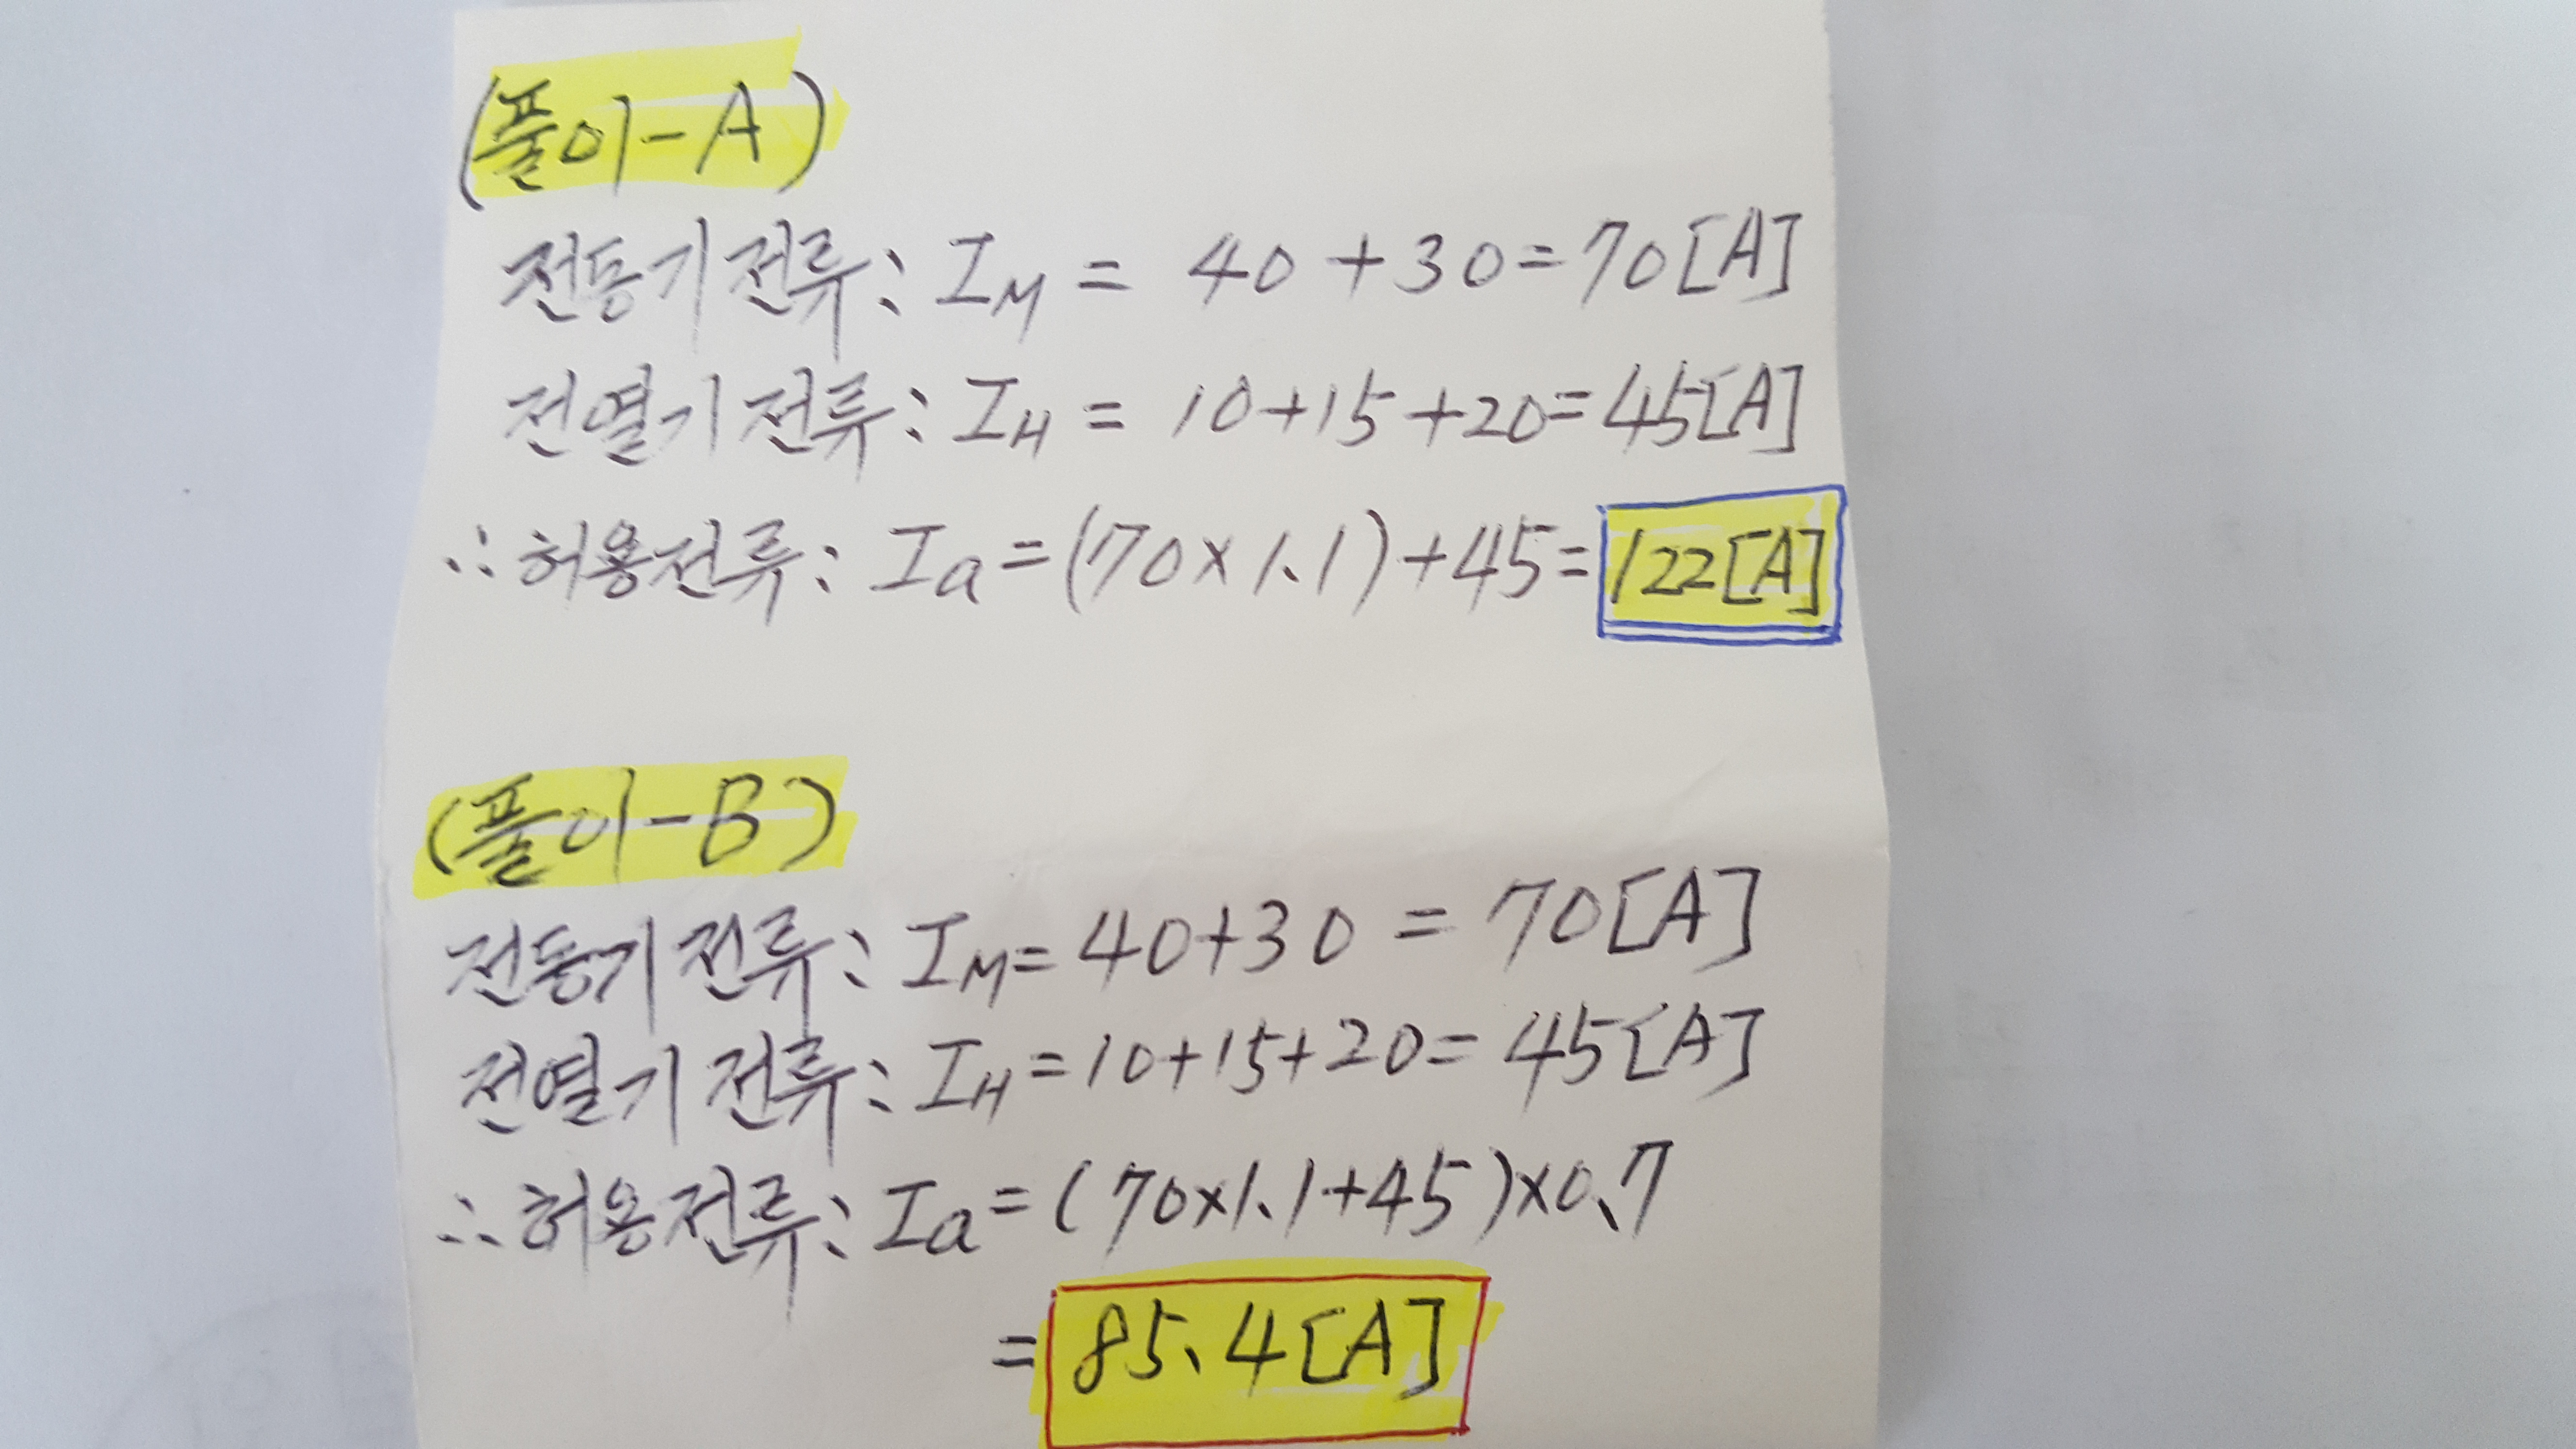 (풀이-A)
전동기 전류: IM = 40+30=70[A]
전열기 전류: IH = 10+15+20=45[A]
∴허용전류: Ia=(70×1.1)+45=122[A]
(풀이-B)
전동기 전류: IM=40+30 = 70[A]
전열기 전류: IH=10+15+20= 45[A]
∴허용전류: Ia=(70×1.1+45)×0.7
=85.4[A]